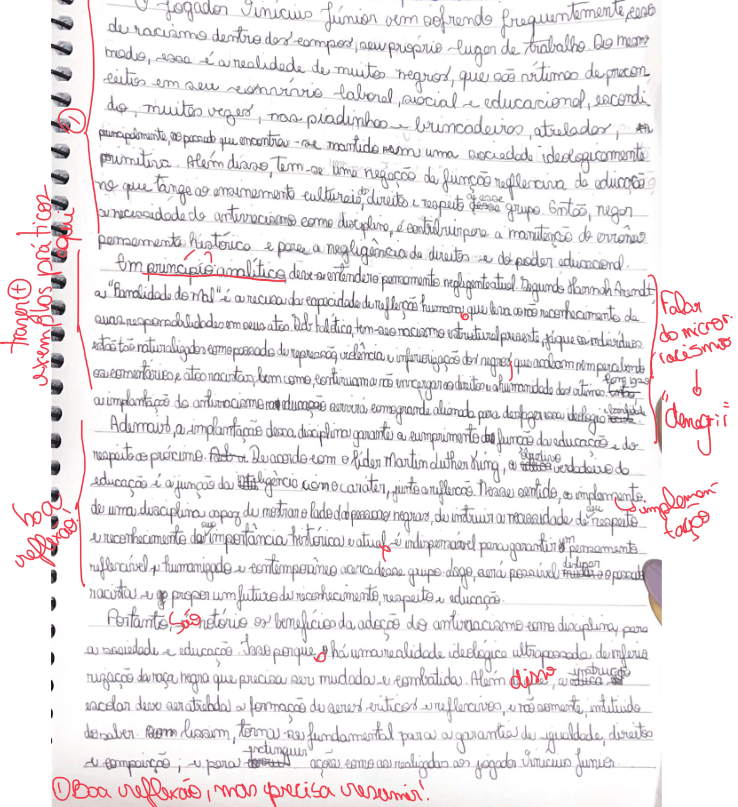 O jogador Vinícius Júnior vem sofrendo frequentemente, caso
de racismo dentro dos campos, seu próprio lugar de trabalho. Do mesmo
modo, essa é a realidade de muitos negros, que são vítimas de precon
ceitos em seu convívio laboral, social e educacional, escondi
do, muitas vezes, nas piadinhas e brincadeiras, atreladas,
principalmente, ao passado que encontra-se mantido em uma sociedade ideologicamente
primitiva. Além disso, tem-se uma negação da função reflexiva da educação
no que tange ao ensinamento cultural, direitos e respeito a esse grupo. Então, negar
a necessidade do antirracismo como disciplina, é contribuir para a manutenção do errôneo
pensamento histórico e para a negligência de direitos e do poder educacional.
Em princípio analítico deve-se entender o pensamento negligente atual. Segundo Hannah Arendt
a "Banalidade do Mal" é a recusa da capacidade de reflexão humana, que leva ao não reconhecimento de
suas responsabilidades em seus atos. Dessa prática, tem-se o racismo estrutural presente, já que os indivíduos
estão tão naturalizados com o passado de repressão, violência e inferiorização dos negros, que acabam nem percebendo
os comentários e atos racistas, bem como, continuam a não enxergar os direitos e a humanidade dos outros. Com isso
a implantação do antirracismo na educação serviria como grande aliada para desfazer essa ideologia
Ademais, a implantação dessa disciplina garante o cumprimento da função da educação e do
respeito ao próximo. De acordo com o líder Martin Luther King, o objetivo verdadeiro da
educação é a junção da inteligência com o caráter, junto a reflexão. Nesse sentido, a implemento
de uma disciplina capaz de mostrar o lado das pessoas negras, de instruir a necessidade de respeito
e reconhecimento da sua importância histórica e atual, é indispensável para garantir um pensamento
reflexível, humanizado e contemporâneo acerca desse grupo. Logo, será possível dissipar o passado
racista e propor um futuro de reconhecimento, respeito e educação.
Portanto, são notório os benefícios da adoção do antirracismo como disciplina, para
a sociedade e educação. Isso porque, há uma realidade ideológica ultrapassada de inferio
rização da raça negra que precisa ser mudada e combatida. Além disso, a instrução
escolar deve ser atrelada a formação de seres críticos e reflexivos, e não somente, instituído
do saber. Assim, torna-se fundamental para a garantia de igualdade, direitos
e compaixão; e para extinguir ações como as realizadas ao jogador Vinicius Junior.
①
trazer (+)
exemplos práticos
aqui
?
Falar
do micror
racismos
↓
"denegrir"
boa
reflexão!
implemen
tação
① Boa reflexão, mas precisa resumir!